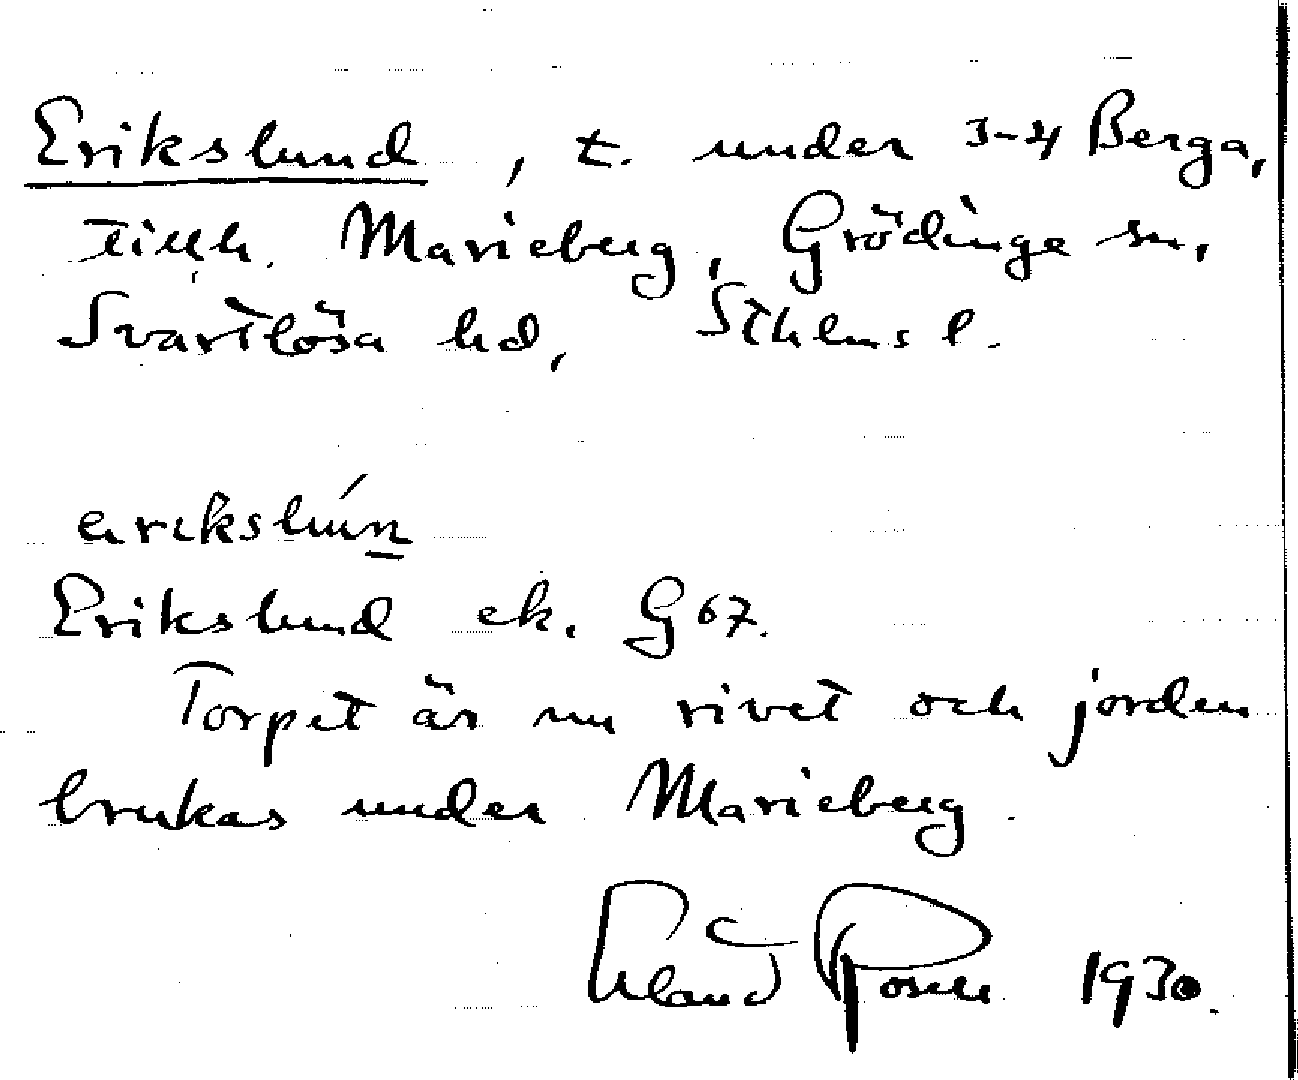 Erikslund, t. under 3-4 Berga,
tillh. Marieberg, Grödinge sn,
Svartlösa hd, Sthlms l.
Erikslund ek. G 67.
Torpet är nu rivet och jorden
brukas under Marieberg.
Erland Rosell 1930.